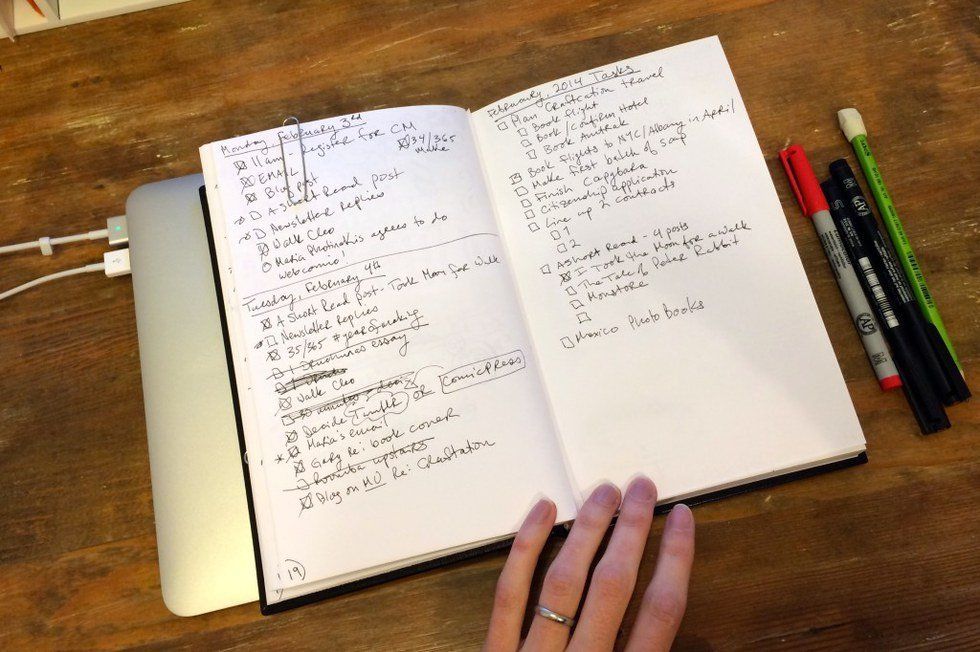 Monday, February 3rd
11am Register for CM
34/365
Make
EMAIL
Blog Post
A Short Read post
Newsletter Replies
Walk Cleo
Maria Photinakis agrees to do
webcomic!
Tuesday, February 4th
A Short Read Post - Took Moon for Walk
Newsletter Replies
35/365 #yearofmaking
essay
Walk Cleo
30 minutes
Decide Tumblr or ComicPress
Maria's email
Gary re: book cover
Roomba upstairs
Blog on MU Re: Craftation
19
February, 2014 Tasks
Plan Craftcation travel
Book flight
Book/Confirm Hotel
Book Amtrak
Book flights to NYC/Albany in April
Make first batch of soap
Finish Capybara
Citizenship application
Line up 2 contracts
1
2
A Short Read - 4 posts
I Took the Moon for a Walk
The Tale of Peter Rabbit
Monstore
Mexico Photo Books